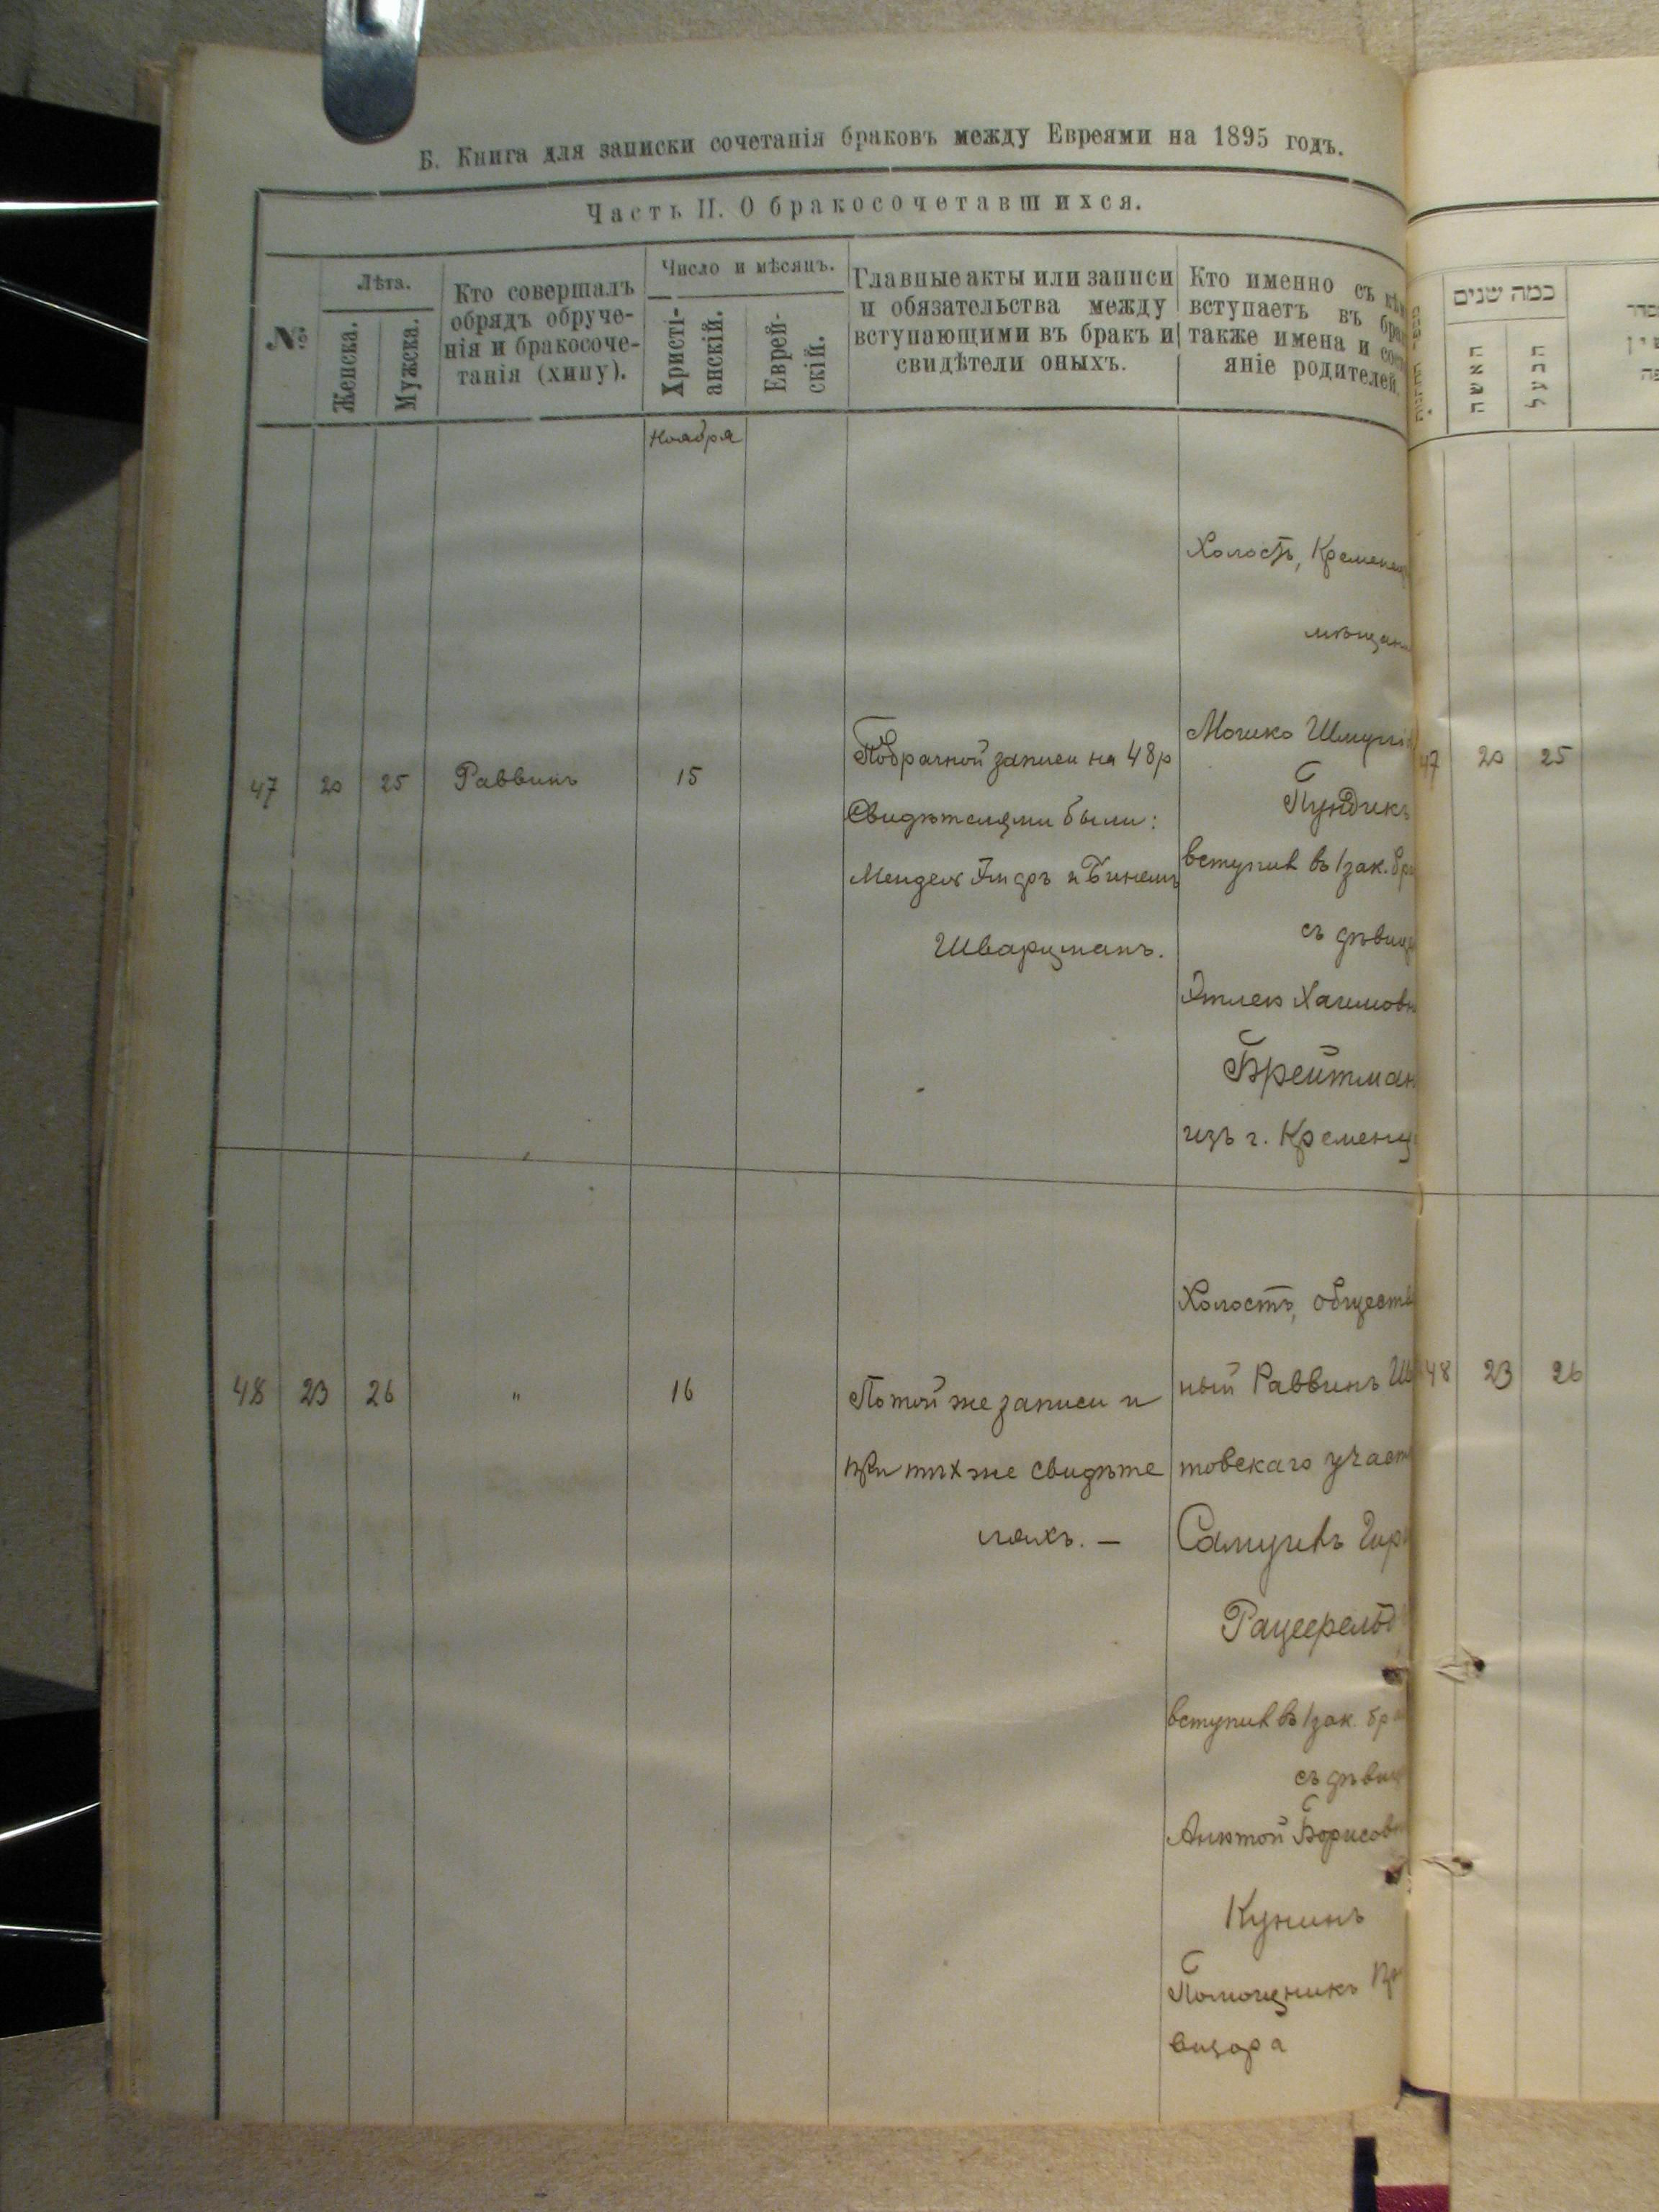 Б. Книга для записки сочетанія браковъ между Евреями на 1895 годъ.
Часть II. О бракосочетавшихся.
№
Лѣта.
Женска.
Мужска.
Кто совершалъ
обрядъ обруче-
нія и бракосоче-
танія (хипу).
Число и мѣсяцъ.
Христі-
анскій.
Еврей-
скій.
Главные акты или записи
и обязательства между
вступающими въ бракъ и
свидѣтели оныхъ.
Кто именно съ кѣмъ
вступаетъ въ бра
также имена и сос
яніе родителей.
Ноября
47 20 25 Раввинъ 15
По брачной записи на 48 р
Свидѣтелями были:
Мендель и
Шварцманъ.
Холостъ, Кременец
мѣщани
Мошко
Пундикъ
вступил въ 1 зак. бра
съ дѣвице
Хаимовн
Брейтман
изъ г. Кременц
48 23 26 " 16
По той же записи и
при тѣх же свидѣте
ляхъ. —
Холостъ, обществе
ный Раввинъ
товскаго участ
вступил въ 1 зак. бра
съ дѣвиц
Борисовн
Кунинъ
Помощникъ
визора
כמה שנים
האשה
הבעל
47 20 25
48 23 26